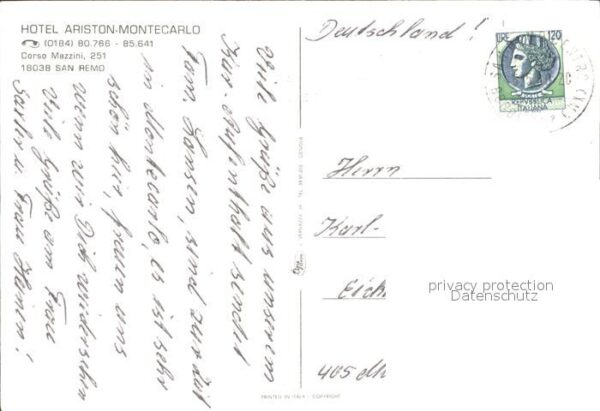 HOTEL ARISTON-MONTECARLO
(0184) 80.766 - 85.641
Corso Mazzini, 251
18038 SAN REMO
Viele Grüße aus unserem
Kur-Aufenthalt sendet
Fam. Hansen, sind zur Zeit
in Montecarlo, es ist sehr
schön hier, freuen uns
wenn wir Dich wiedersehen
Viele Grüße an Frau
u. Frau
Deutschland!
LIRE 120
REPUBBLICA
ITALIANA
Herrn
Karl-
Eich
405 Mh
privacy protection
Datenschutz
PRINTED IN ITALY - COPYRIGHT